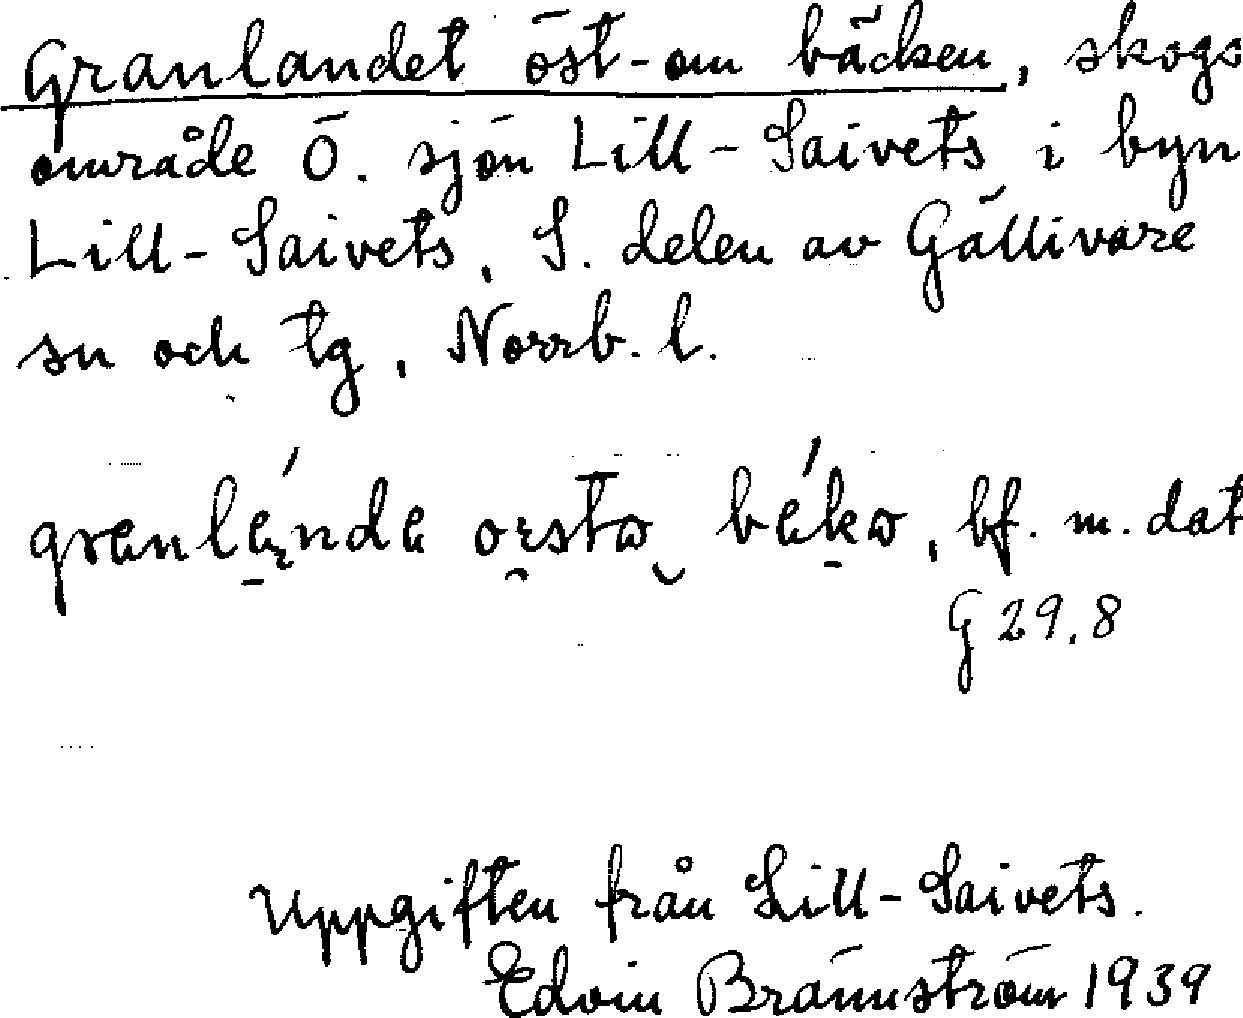 Granlandet öst-om bäcken, skogs
område Ö. sjön Lill-Saivets i byn
Lill-Saivets, S. delen av Gällivare
sn och tg, Norrb. l.
bf. m. dat
G 29.8
Uppgiften från Lill-Saivets.
Edvin Brännström 1939